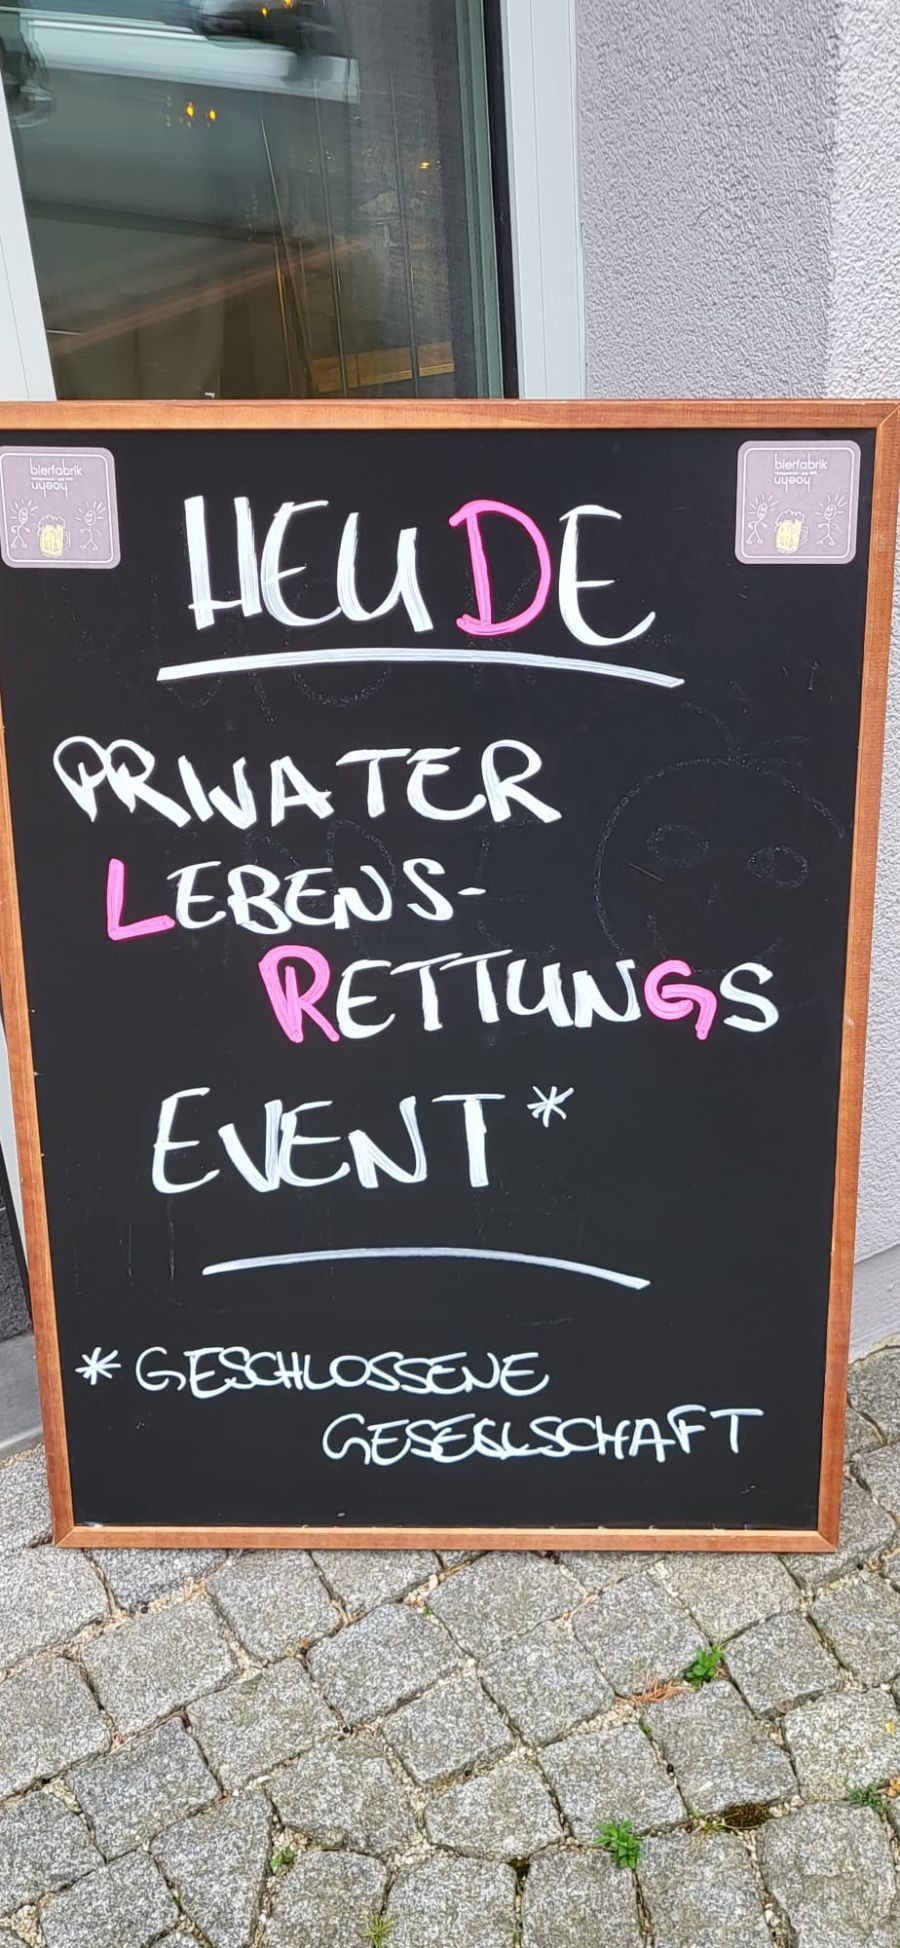 bierfabrik
huehn
bierfabrik
huehn
HEUDE
PRIVATER
LEBENS-
RETTUNGS
EVENT*
* GESCHLOSSENE
GESESLSCHAFT